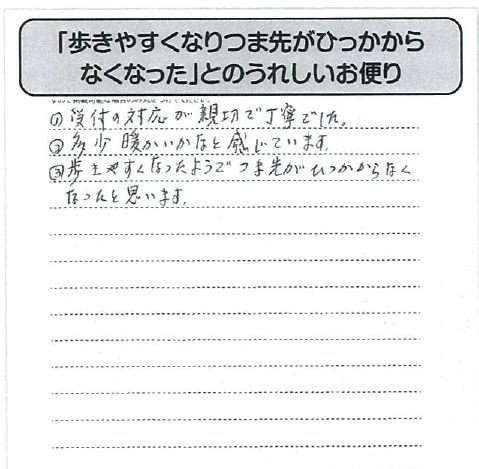 「歩きやすくなりつま先がひっかから
なくなった」とのうれしいお便り
①受付の対応が親切で丁寧でした。
②多少暖かいかなと感じています。
③歩きやすくなったようでつま先がひっかからなく
なったと思います。